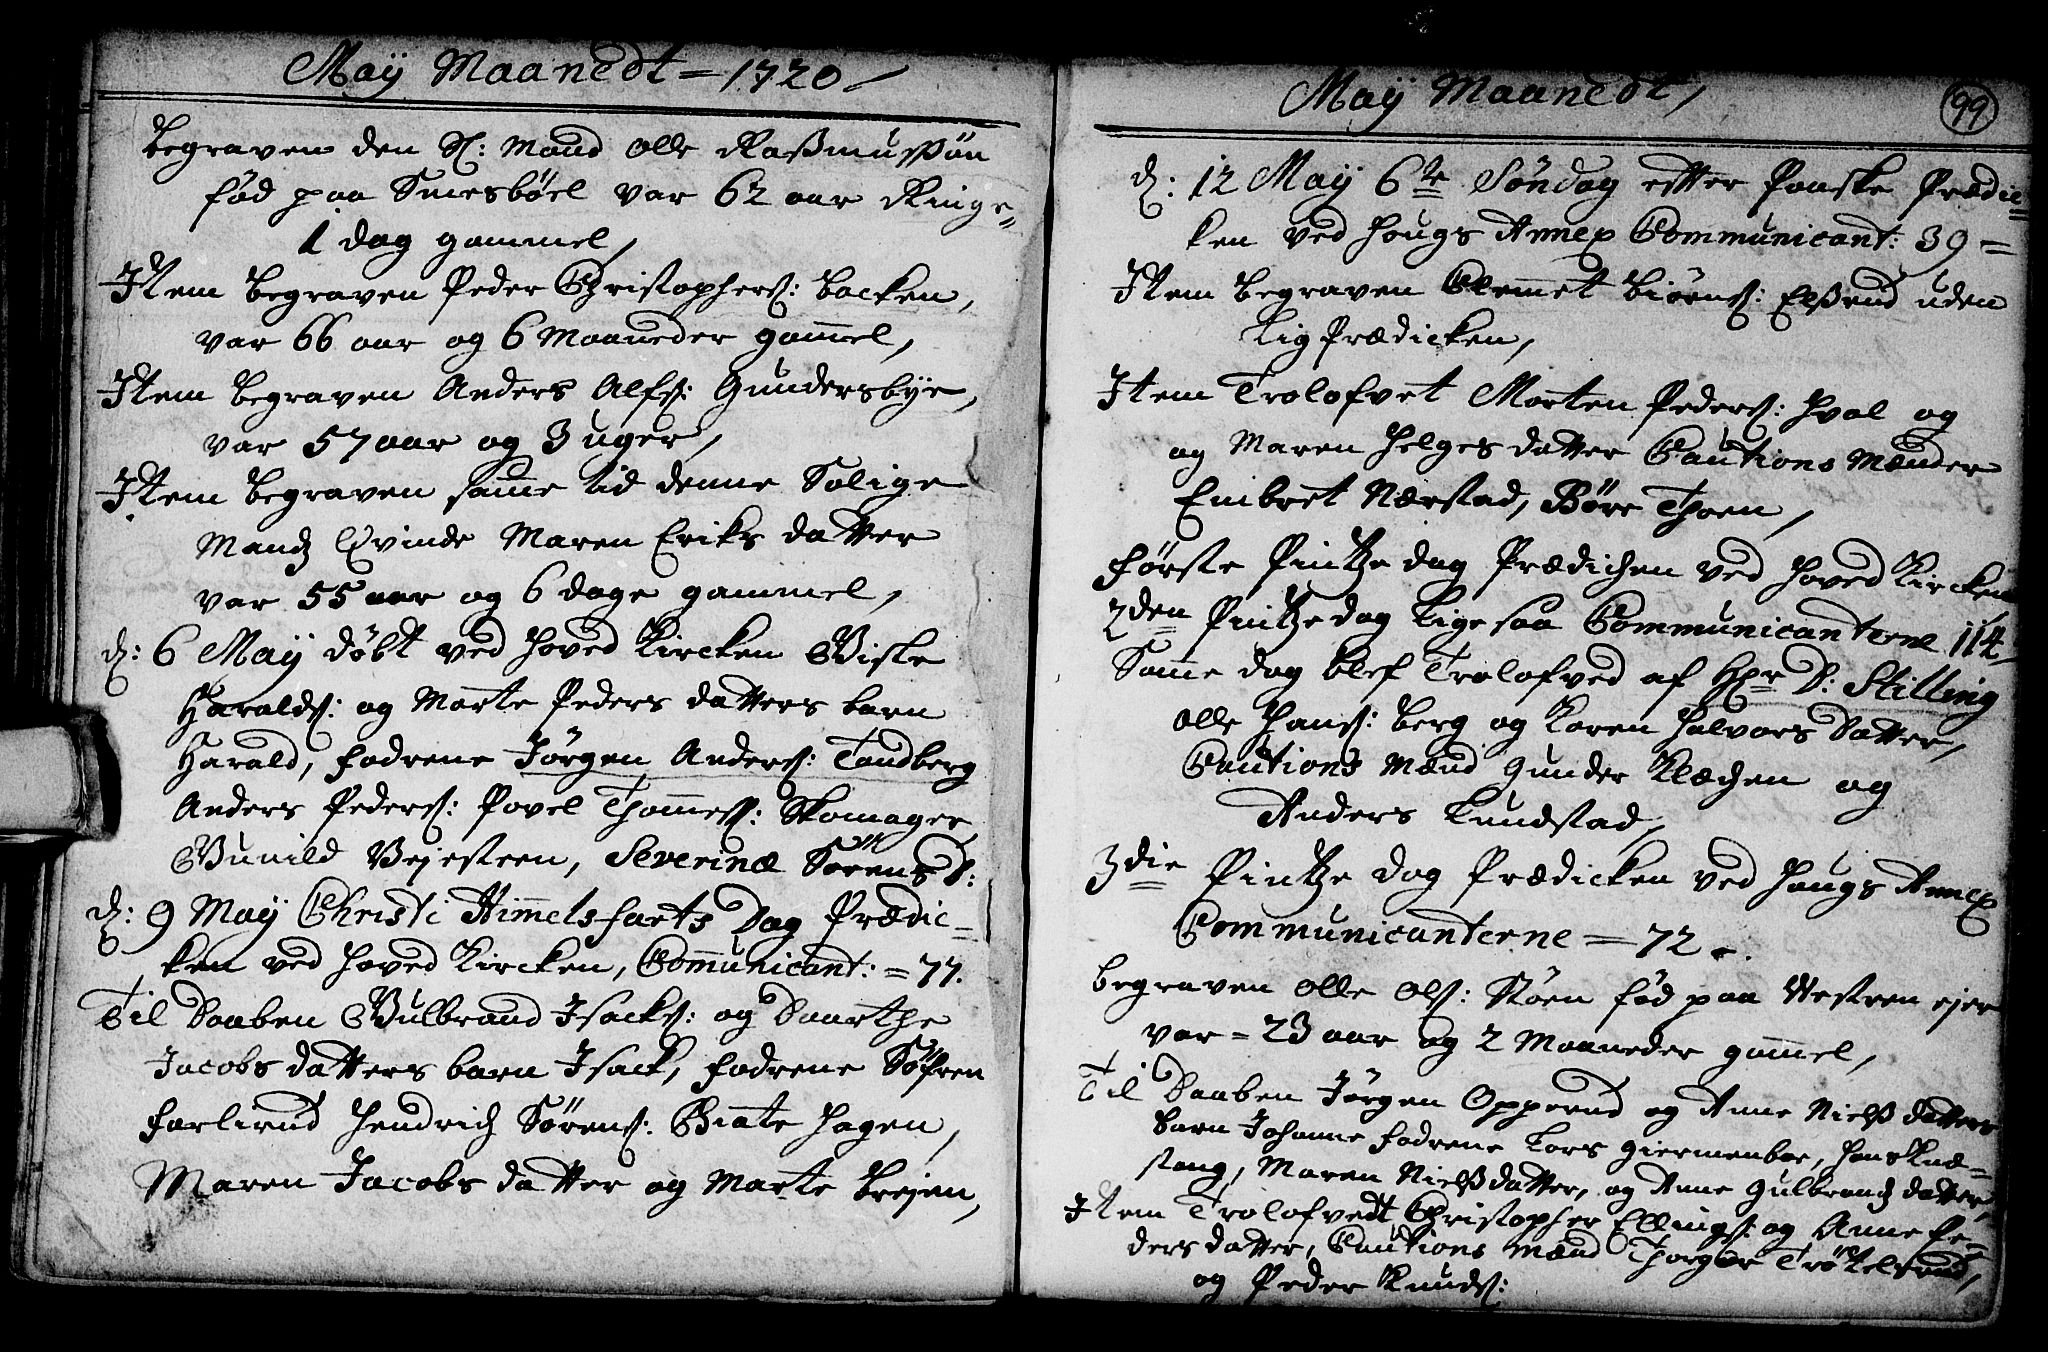 Maÿ Maanedt = 1720 /
Begraven den Sl: Mand Olle Raßmusßøn
fød paa Smesbøel var 62 aar Ringe=
1 dag gammel,
Item begraven Peder Christophers: backen,
var 66 aar og 6 Maaneder gam̄el,
Item begraven Anders Alfs: Gundersbye,
var 57 aar og 3 uger,
Item begraven sam̄e tid denne Salige
Mands Qvinde Maren Eriks datter
var 55 aar og 6 dage gammel,
d: 6 Maÿ døbt ved Hoved Kircken Giste
Haralds: og Marte Peders datters barn
Harald, fadrene Jørgen Anders: Tandberg
Anders Peders: Povel Thom̄ess: Skomager
Gunild Vejesteen, Severinæ Sørens D:
d: 9 Maÿ Christi Himmelsfarts Dag Prædic=
ken ved Hoved Kircken, Com̄unicant: = 77.
Til Daaben Gulbrand Isacks: og Daarthe
Jacobs datters barn Isack, fadrene Søfren
Farlirud Hendrich Sørens: Giate Hagen,
Maren Jacobs datter og Marte Brejen,
Maÿ Maanedt,
99
d: 12 Maÿ 6te Søndag efter Paaske Prædic=
ken ved Hougs Annex Communicant: 39 =
Item begraven Clemmet Biørns: Elsrud uden
Lig Prædicken,
Item Trolofvet Morten Peders: Hval og
og Maren Helges datter Cautions Mænder
Embret Nærstad, Børe Thoen,
Første Pintze dag Prædichen ved Hoved Kircken
2den Pintzedag ligesaa Communicanterne 114,
Sam̄e dag blef Trolofved af Hr P: Stilling
Olle Hans: Berg og Karen Halvors Datter,
Cautions Mænd Gunder Klæchen og
Anders Lundstad,
3die Pintze dag Prædicken ved Hougs Annex
Communicanterne = 72.
Begraven Olle Ols: Støen fød paa Vestren ejer
var = 23 aar og 2 Maaneder gam̄el,
Til Daaben Jørgen Opperud og Anne Nielß datters
barn Johanne fadrene Lars Giermenboe, Hans Knæ=
stang, Maren Nielß datter, og Anne Gulbrands datter,
Item Trolofvedt Christopher Ellings: og Anne Pe=
ders datter, Cautions Mænd Thorger Trøtelsrud,
og Peder Knuds: